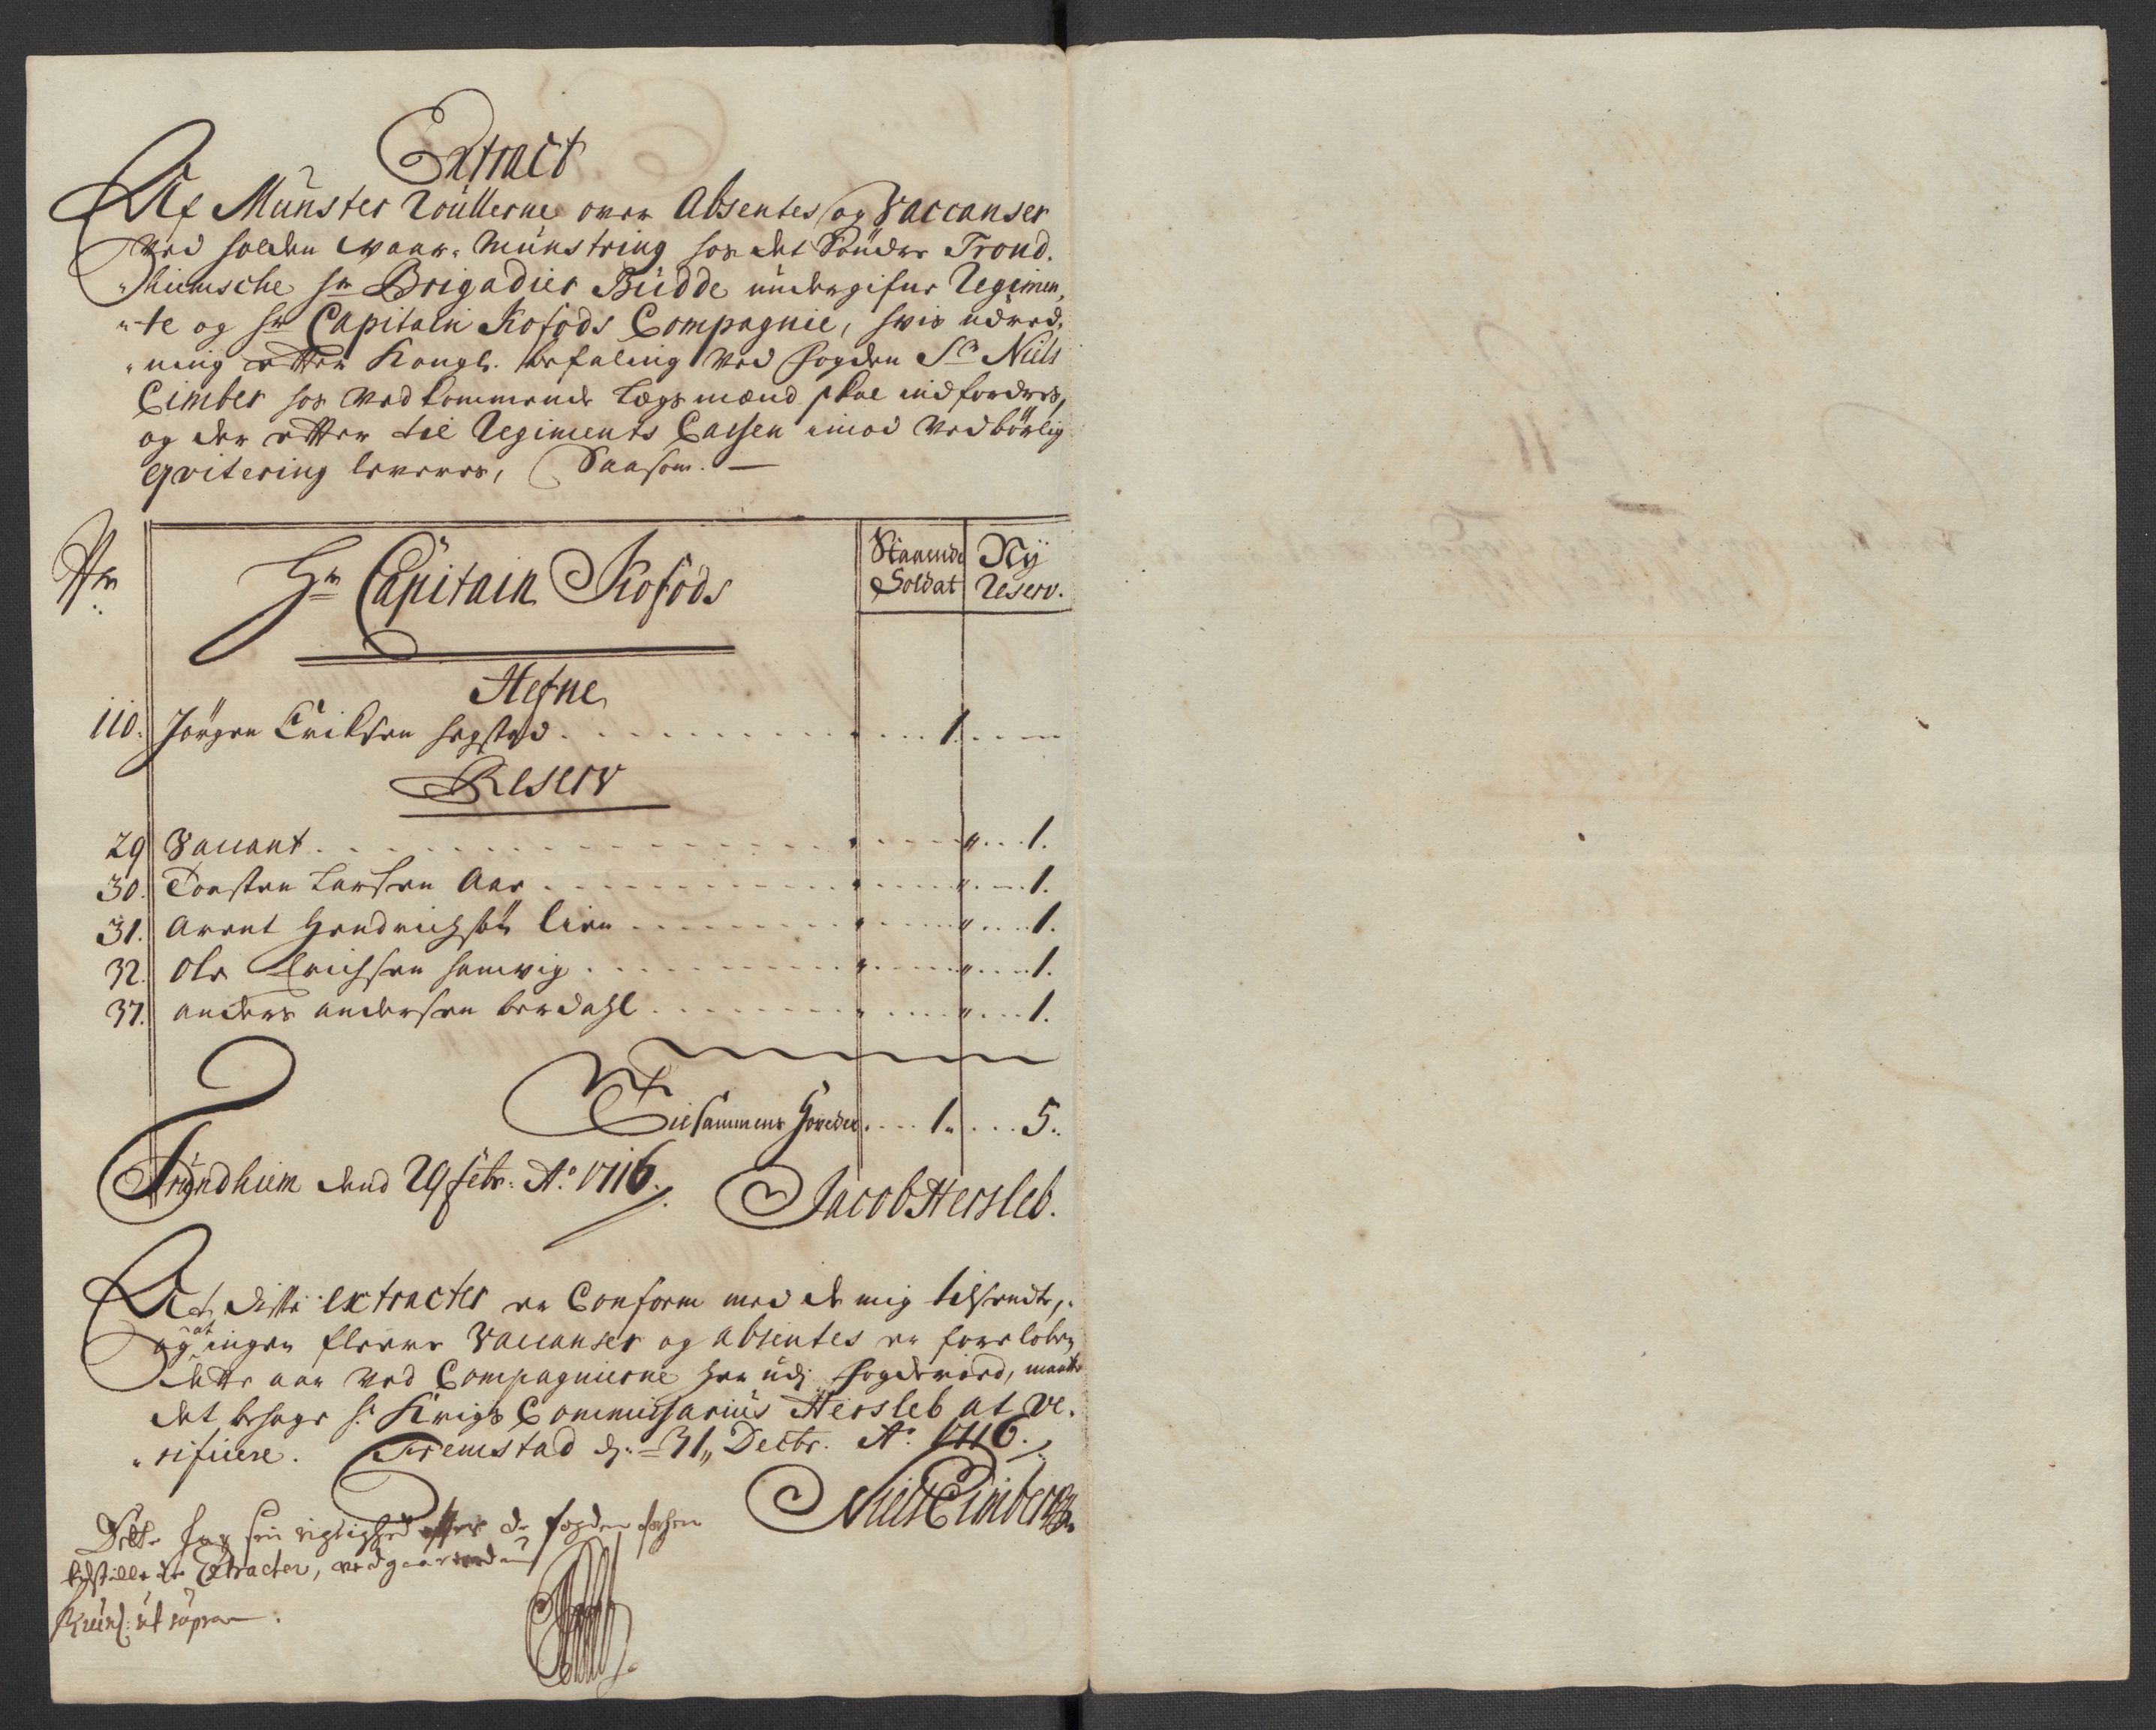 Extract
Af Münster Roüllerne over Absentes og Vaccanser
ved holden Waar-Münstring hos det Sønder Trond-
hiemsche hr Brigadier Büdde ündergifne Regimen-
te og hr Capitain Kofods Compagnie, hvis udred-
ning effter Kongl. befaling ved fogden Sr Niels
Cimber hos vedkommende Lægsmænd skal indfordres,
og der effter til Regiments Cassen imod vedbørlig
qvitering leveres, Saasom. —
Nr
Hr Capitain Kofods
Staaende Soldat
Nÿ Reserv.
Hefne
110. Jörgen Eriksen hegstad . . . 1. . . .
Reserv
29 Vacant . . . " . . . 1.
30. Torsten Larsen Aae . . . " . . . 1.
31. Arent Hendrichsön Lien . . . " . . . 1.
32. Ole Erichsen hamvig . . . " . . . 1.
37. anders andersen berdahl . . . " . . . 1.
Tilsammens Hoveder . . . 1 . . . 5.
Tründhiem dend 29 febr: Ao 1716.
Jacob Hersleb.
At disse extracter er Conform med de mig tilsendte,
og at ingen fleere Vacanser og absentes er foreløben
dette aar ved Compagnierne her udj fogderied, maatte
det behage hr Krigs Commissarius Hersleb at ve-
rificere. Tremstad d: 31 Decbr. Ao 1716.
Niels Cimber
Dette har sin rigtighed effter de fogden
tilstillede Extracter,
ut supra.